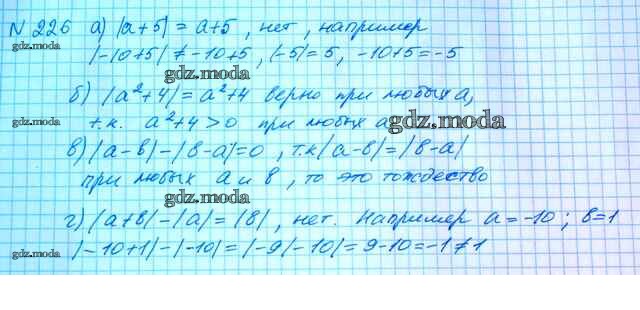 N 226 а) |a+5| = a+5, нет, например
gdz.moda
|-10+5| ≠ -10+5, |-5|= 5, -10+5=-5
gdz.moda
б) |a²+4| = a²+4 верно при любых a,
gdz.moda т.к. a²+4>0 при любых a gdz.moda
в) |a-в|-|в-a|=0, т.к |a-в|=|в-a|
при любых a и в, то это тождество
г) |a+в|-|a|=|в|, нет. Например a=-10; в=1
gdz.moda
|-10+1|-|-10|=|-9|-10|=9-10=-1≠1
gdz.moda